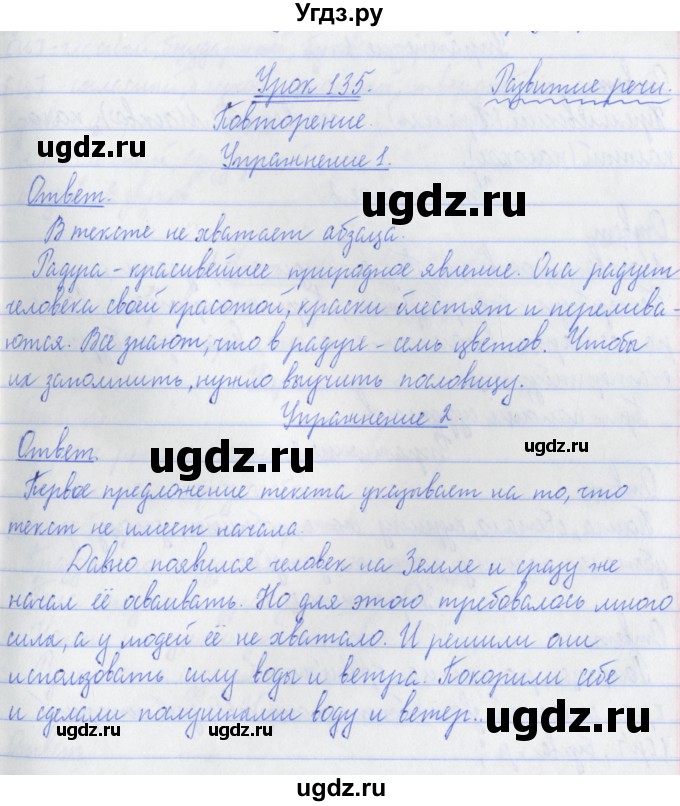 Угдз.ру
Урок 135. Развитие речи.
Повторение.
ugdz.ru
Упражнение 1.
ugdz.ru
Ответ.
В тексте не хватает абзаца.
Радуга - красивейшее природное явление. Она радует
человека своей красотой, краски блестят и перелива-
ются. Все знают, что в радуге - семь цветов. Чтобы
их запомнить, нужно выучить пословицу.
Упражнение 2.
ugdz.ru
ugdz.ru
Ответ.
Первое предложение текста указывает на то, что
текст не имеет начала.
Давно появился человек на Земле и сразу же
начал её осваивать. Но для этого требовалось много
сила, а у людей её не хватало. И решили они
использовать силу воды и ветра. Покорили себе
и сделали послушными воду и ветер...
ugdz.ru
ugdz.ru
ugdz.ru
ugdz.ru